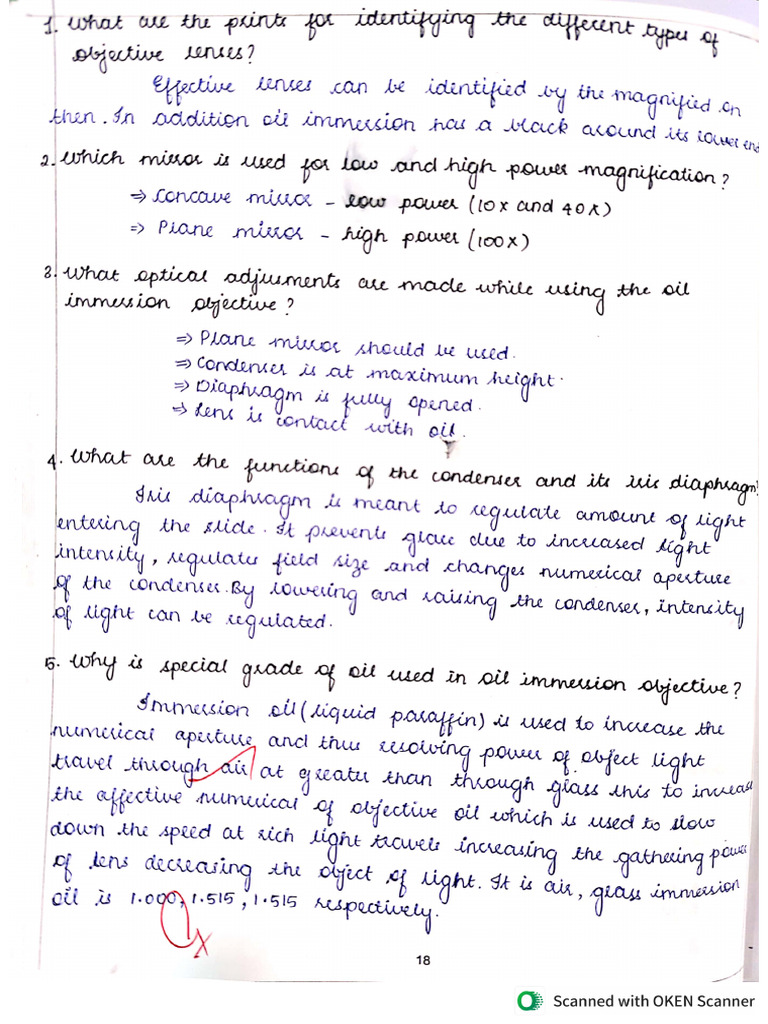 1. What are the prints for identifying the different types of
objective lenses?
Effective lenses can be identified by the magnified on
then. In addition oil immersion has a black around its lower end
2. Which mirror is used for low and high power magnification?
⇒ Concave mirror - low power (10x and 40x)
⇒ Plane mirror - high power (100x)
3. What optical adjusments are made while using the oil
immersion objective?
⇒ Plane mirror should be used.
⇒ Condenser is at maximum height.
⇒ Diaphragm is fully opened.
⇒ Lens is contact with oil.
4. What are the functions of the condenser and its iris diaphragm?
Iris diaphragm is meant to regulate amount of light
entering the slide. It prevents glare due to increased light
intensity, regulates field size and changes numerical aperture
of the condenser. By lowering and raising the condenser, intensity
of light can be regulated.
5. Why is special grade of oil used in oil immersion objective?
Immersion oil (liquid paraffin) is used to increase the
numerical aperture and thus resolving power of object light
travel through air at greater than through glass this to increase
the affective numerical of objective oil which is used to slow
down the speed at rich light travels increasing the gathering power
of lens decreasing the object of light. It is air, glass immersion
oil is 1.000, 1.515, 1.515 respectively.
x
18
Scanned with OKEN Scanner